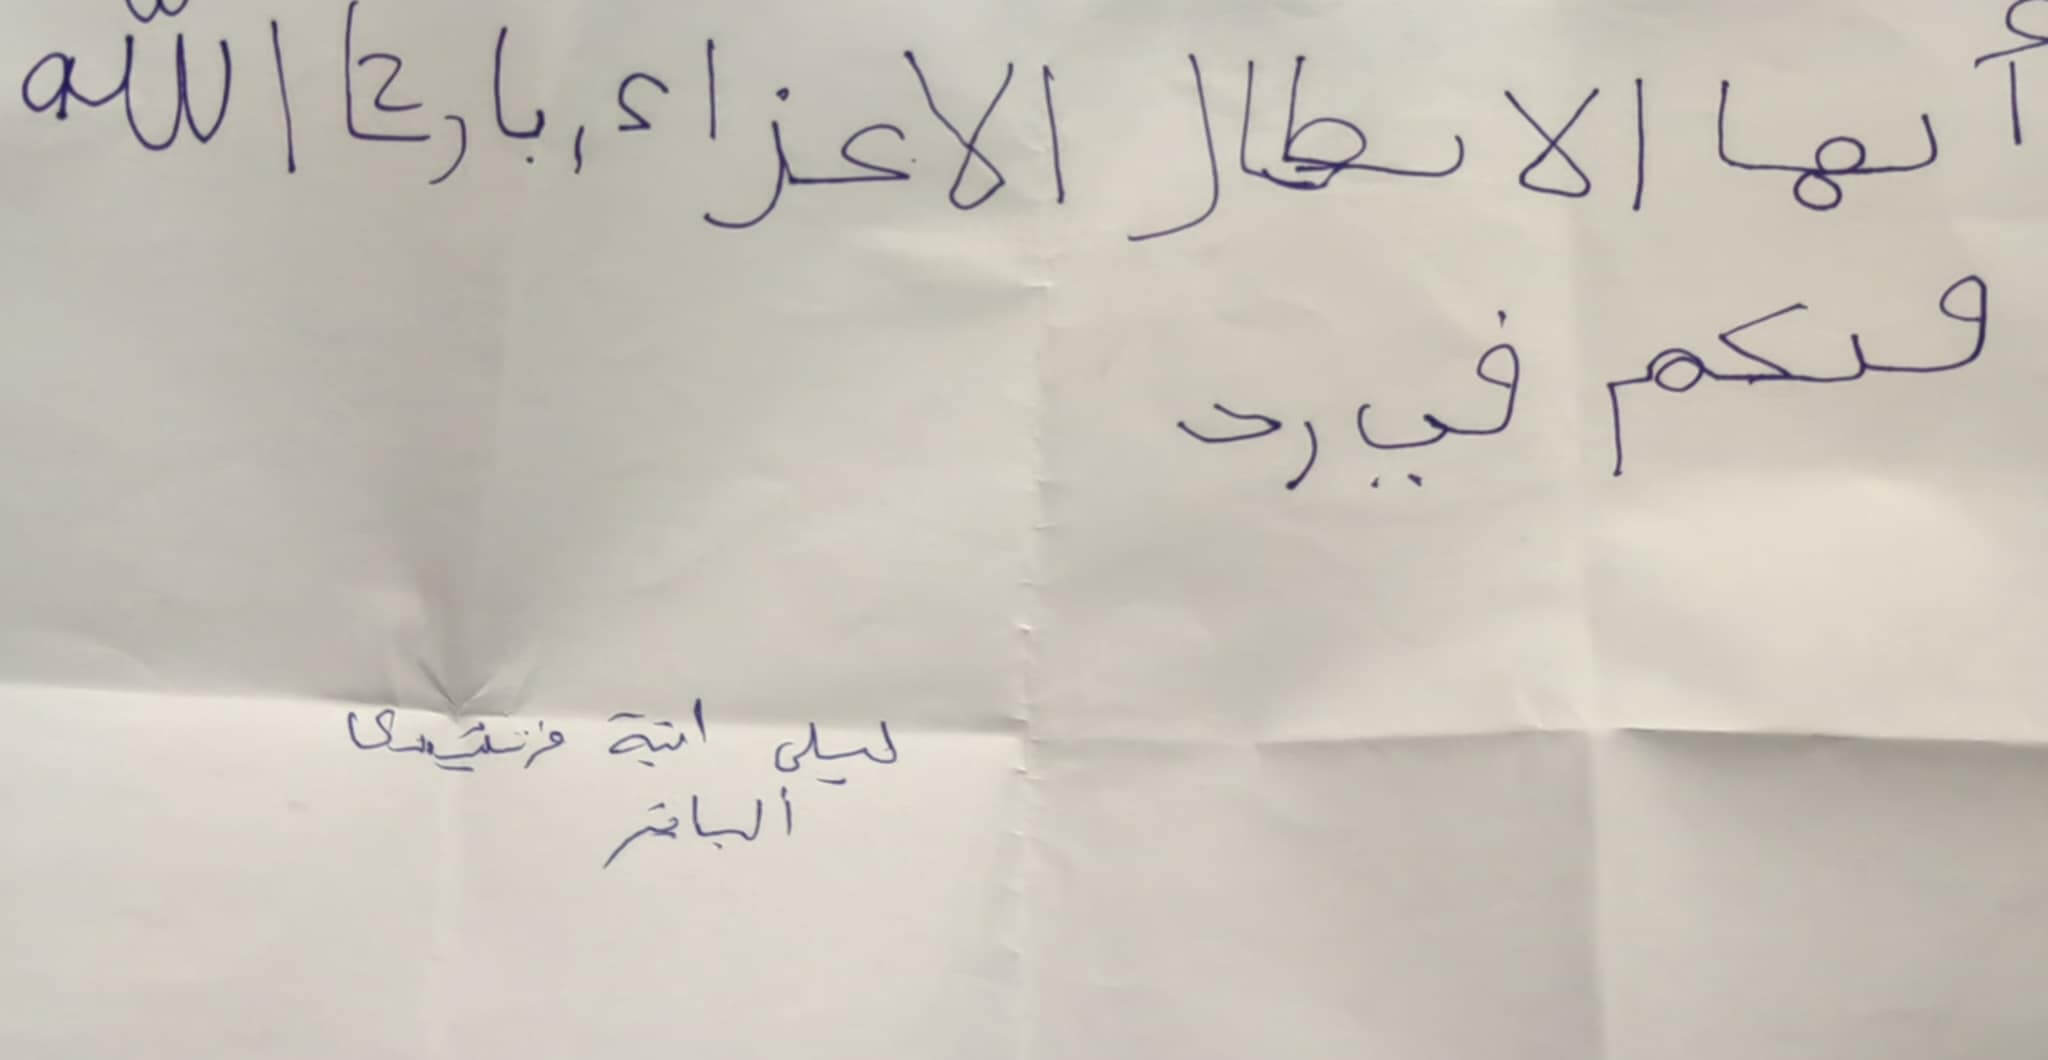 أيها الابطال الاعزاء, بارك الله
فيكم في رد
ليلى ابنة
الباقر